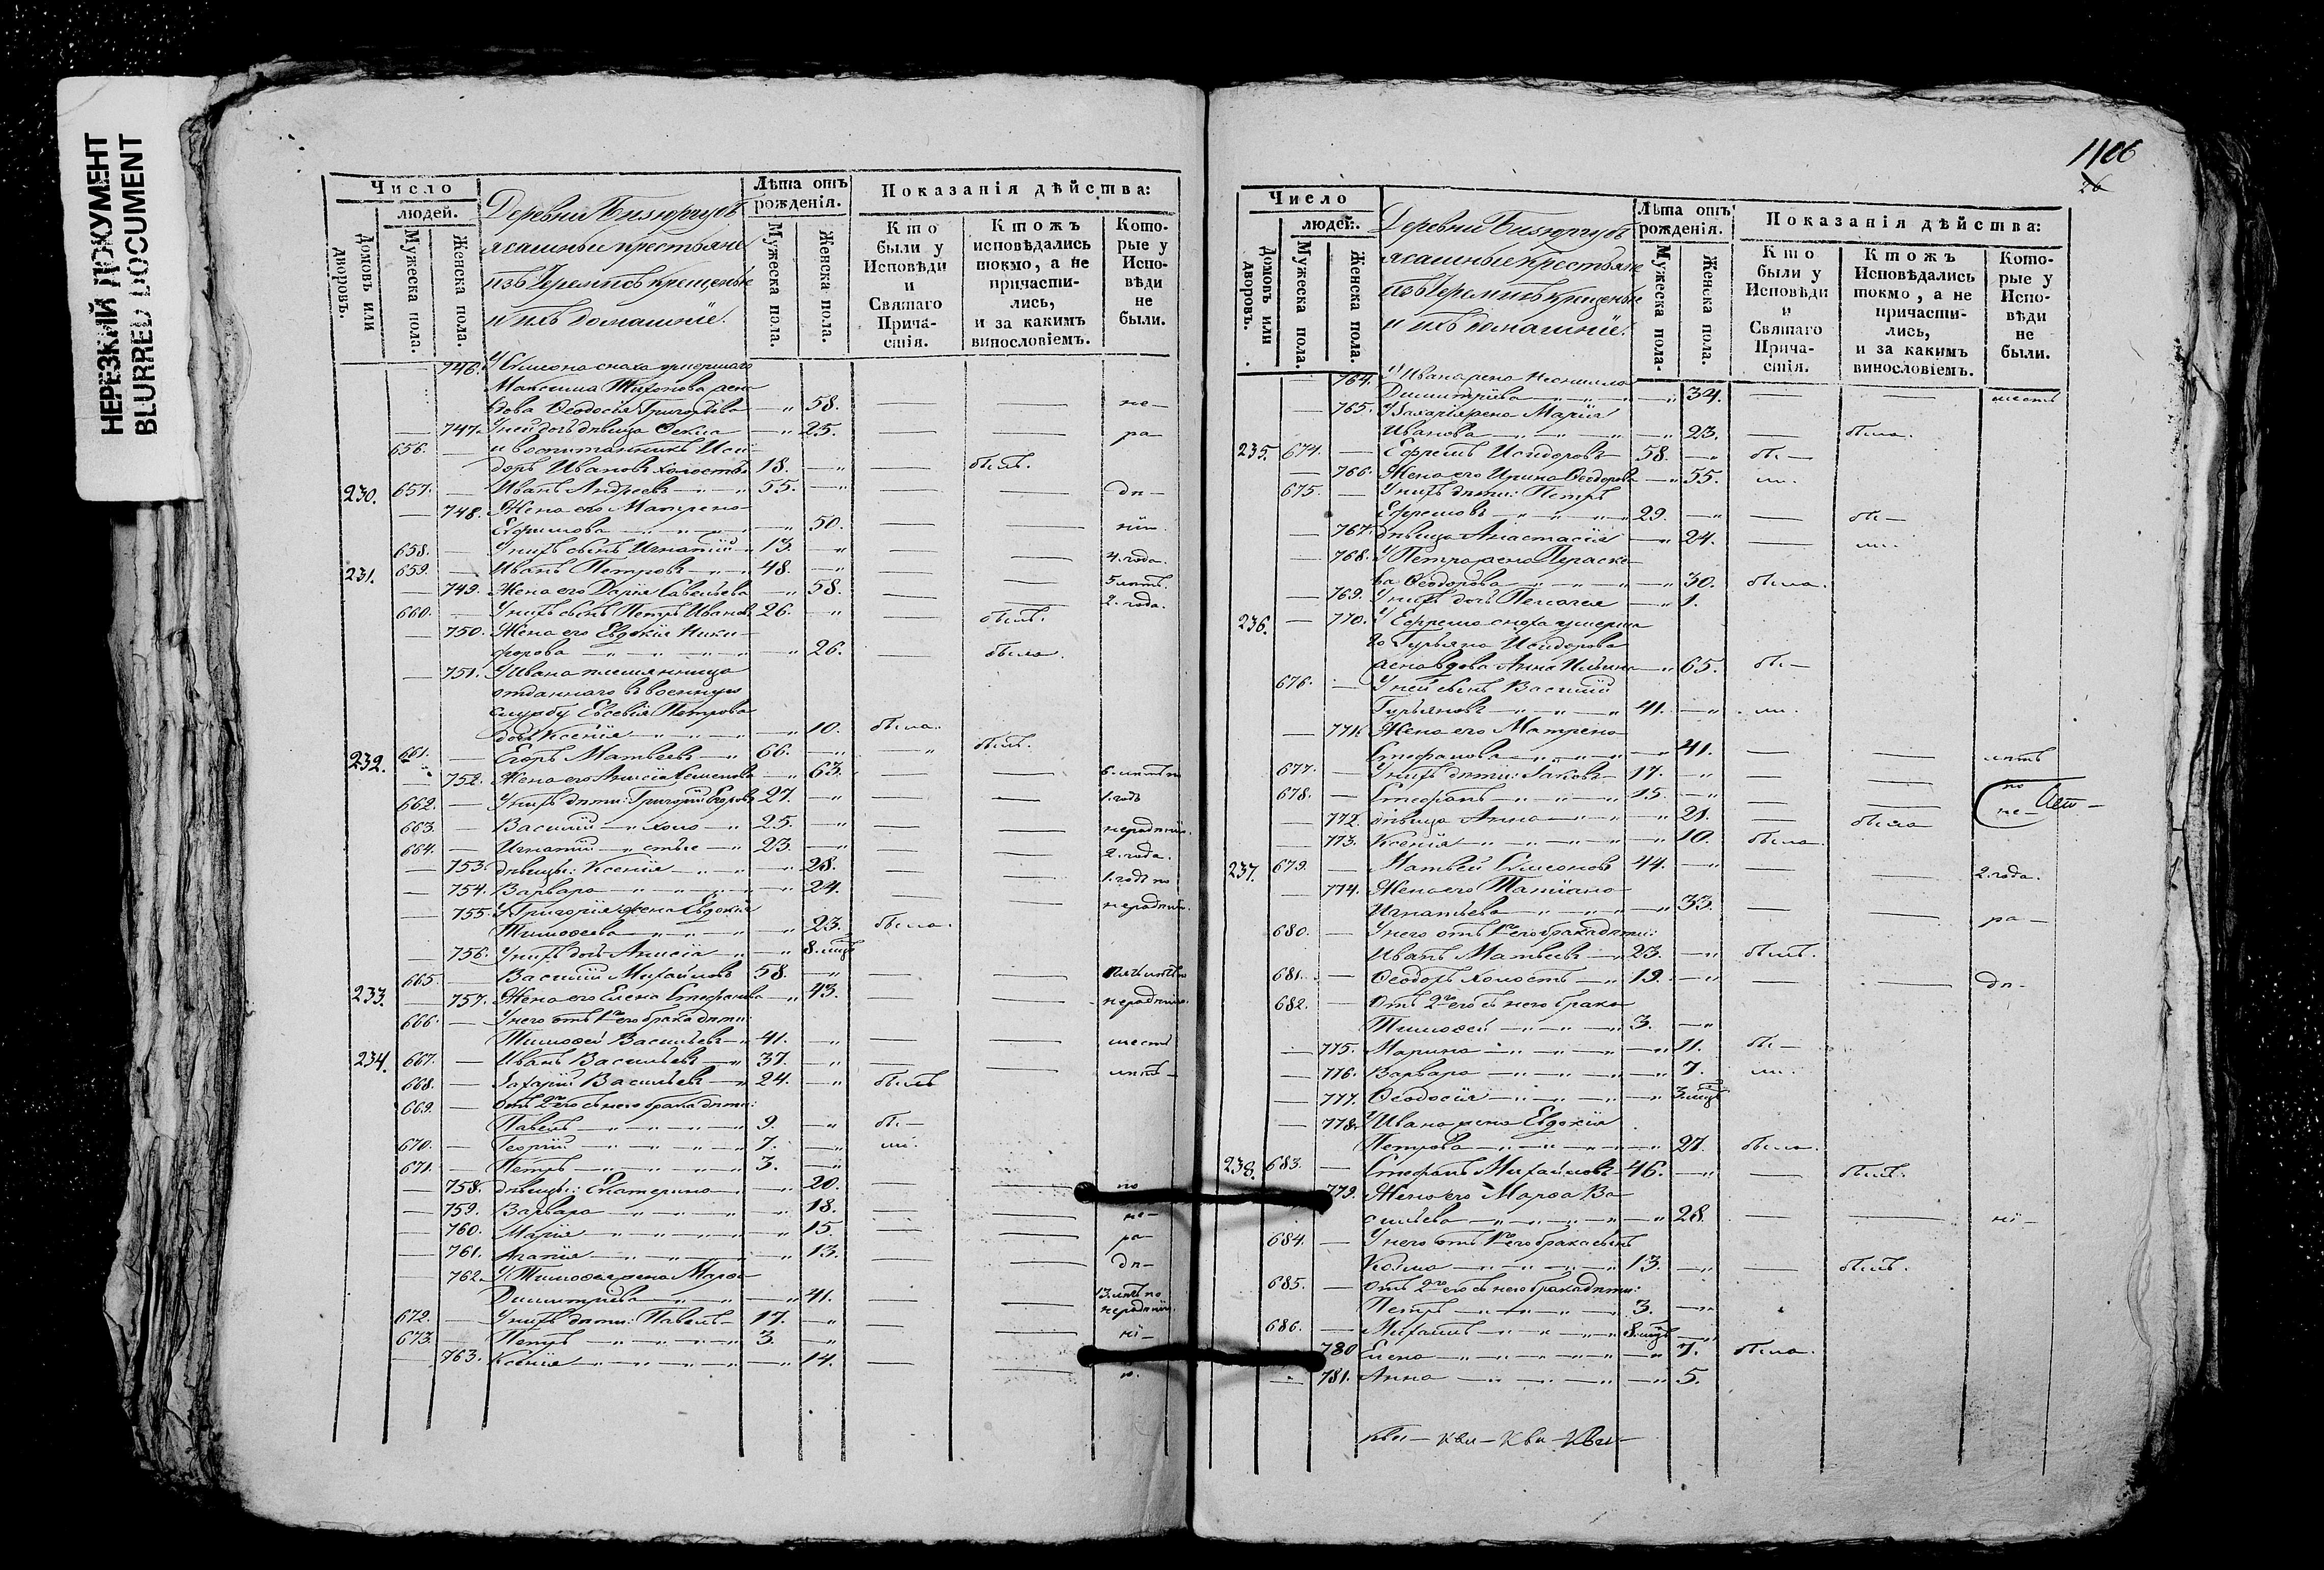 НЕРЕЗКИЙ ДОКУМЕНТ
BLURRED DOCUMENT
Число
людей.
Домовъ или дворовъ.
Мужеска пола.
Женска пола.
Деревни
ясашные крестьяне
изъ Черемисъ крещеные
и ихъ домашніе.
Лѣта отъ рожденія.
Мужеска пола.
Женска пола.
Показанія дѣйства:
Кто были у Исповѣди и Святаго Причастія.
Ктожъ исповѣдались токмо, а не причастились, и за какимъ винословіемъ.
Которые у Исповѣди не были.
746. У Симиона сноха умершаго
Максима Тихонова жена
вдова Ѳеодосія Григорьева 58. не-
747. У ней дочь дѣвица Ѳекла 25. ра-
656. и воспитанникъ Иси-
доръ Ивановъ холостъ 18. былъ.
230. 657. Иванъ Андреевъ 55. дѣ-
748. Жена его Матрена
Ефимова 50. нію.
658. У нихъ сынъ Игнатій 13. 4. года.
231. 659. Иванъ Петровъ 48. 5 лѣтъ.
749. Жена его Дарія Савельева 58. 2. года.
660. У нихъ сынъ Петръ Иванов 26. былъ.
750. Жена его Евдокія Ники-
форова 26. была.
751. У Ивана племянница
отданнаго в военную
службу Евсевія Петрова
дочь Ксенія 10. была.
232. 661. Егоръ Матвеевъ 66. былъ.
752. Жена его Анисія Семенова 63. 6. лѣтъ по
662. У нихъ дѣти: Григорій Егоровъ 27. 1. годъ
663. Василій холо- 25. нерадѣнію.
664. Игнатій стые 23. 2. года.
753. дѣвицы: Ксенія 28. 1. годъ по
754. Варвара 24. нерадѣнію.
755. У Григорія жена Евдокія
Тимоѳеева 23. была.
756. У нихъ дочь Анисія 8. мцъ
665. Василій Михайловъ 58.
233. 757. Жена его Елена Стефанова 43. нерадѣнію.
666. У него отъ 1го его брака дѣти:
Тимоѳей Васильевъ 41. шесть
234. 667. Иванъ Васильевъ 37. лѣтъ-
668. Захарій Васильевъ 24. былъ
669. Отъ 2го его съ нею брака дѣти:
Павелъ 9. бы-
670. Георгій 7. ли.
671. Петръ 3.
758. дѣвицы: Екатерина 20. по
759. Варвара 18. не-
760. Марія 15. ра-
761. Агапія 13. дѣ-
762. У Тимоѳея жена Марѳа
Димитріева 41. 13. лѣтъ по
нерадѣнію.
672. У нихъ дѣти: Павелъ 17.
673. Петръ 3. ні-
763. Ксенія 14. ю.
1106
26
Число
людей.
Домовъ или дворовъ.
Мужеска пола.
Женска пола.
Деревни
ясашные крестьяне
изъ Черемисъ крещеные
и ихъ домашніе.
Лѣта отъ рожденія.
Мужеска пола.
Женска пола.
Показанія дѣйства:
Кто были у Исповѣди и Святаго Причастія.
Ктожъ Исповѣдались токмо, а не причастились, и за какимъ винословіемъ.
Которые у Исповѣди не были.
764. У Ивана жена
Димитріева 34. шесть
765. У Захарія жена Марія
Иванова 23. была.
235. 674. Ефремъ Исидоровъ 58. бы-
766. Жена его Ирина Ѳеодорова 55. ли.
675. У нихъ дѣти: Петръ
Ефремовъ 29. бы-
767. дѣвица Анастасія 24. ли.
768. У Петра жена Параске-
ва Ѳеодорова 30. была.
769. У нихъ дочь Пелагея 1.
236. 770. У Ефрема сноха умерша-
го Гурьяна Исидорова
жена вдова Анна Ильина 65. бы-
676. У ней сынъ Василій
Гурьяновъ 41. ли.
771. Жена его Матрена
Стефанова 41. лѣтъ
677. У нихъ дѣти: Іаковъ 17. по
678. Стефанъ 15. не-
772. дѣвица Анна 21. была
773. Ксенія 10. была.
237. 679. Матвей Симионов 44. 2. года.
774. Жена его Татіана
Игнатьева 33. ра-
680. У него отъ 1го его брака дѣти:
Иванъ Матвеевъ 23. былъ.
681. Ѳеодоръ холостъ 19. дѣ-
682. Отъ 2го его съ нею брака
Тимоѳей 3.
775. Марина 11. бы-
776. Варвара 7. ли.
777. Ѳеодосія 3 мцъ
778. У Ивана жена Евдокія
Петрова 27. была.
238. 683. Стефанъ Михайловъ 46. былъ.
779. Жена его Марѳа Ва-
сильева 28. ні-
684. У него отъ 1го его брака сынъ
Козма 13. былъ.
685. Отъ 2го его съ нею брака дѣти:
Петръ 3.
686. Михаилъ 8. мцъ
780 Елена 7. была.
781. Анна 5.